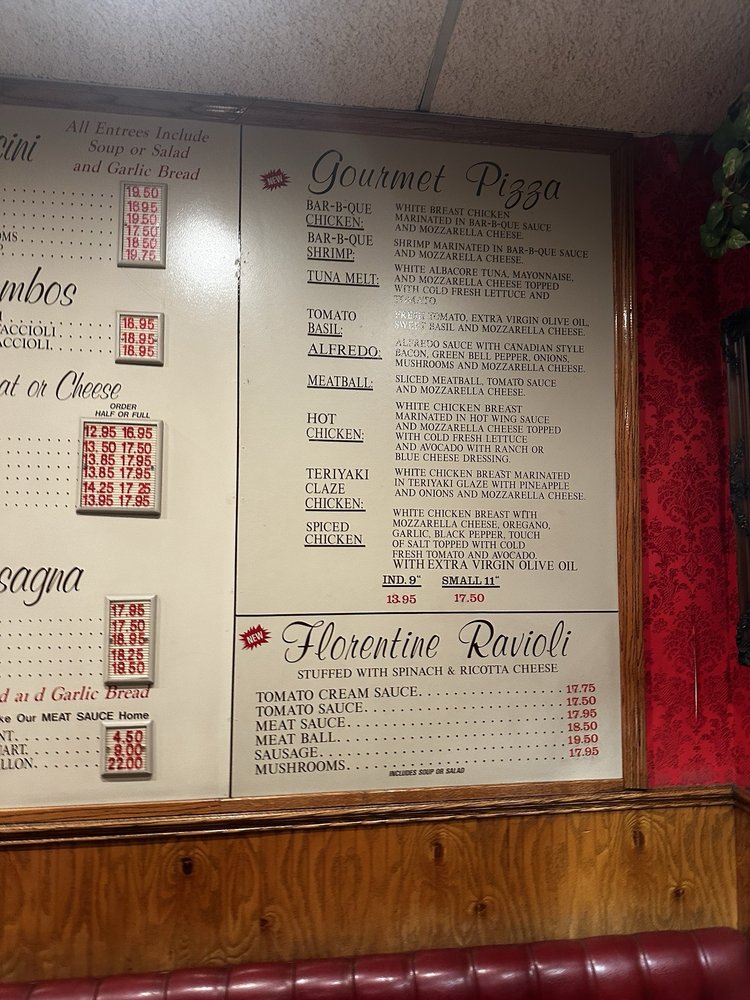 cini
All Entrees Include
Soup or Salad
and Garlic Bread
19.50
16.95
19.50
OMS 17.50
18.50
19.75
mbos
18.95
ACCIOLI 18.95
ACCIOLI. 18.95
at or Cheese
ORDER
HALF OR FULL
12.95 16.95
13.50 17.50
13.85 17.95
13.85 17.95
14.25 17 25
13.95 17.95
sagna
17.95
17.50
18.95
18.25
19.50
and Garlic Bread
ke Our MEAT SAUCE Home
NT. 4.50
ART. 9.00
LLON. 22.00
NEW
Gourmet Pizza
BAR-B-QUE WHITE BREAST CHICKEN
CHICKEN: MARINATED IN BAR-B-QUE SAUCE
AND MOZZARELLA CHEESE.
BAR-B-QUE SHRIMP MARINATED IN BAR-B-QUE SAUCE
SHRIMP: AND MOZZARELLA CHEESE.
TUNA MELT: WHITE ALBACORE TUNA, MAYONNAISE,
AND MOZZARELLA CHEESE TOPPED
WITH COLD FRESH LETTUCE AND
TOMATO.
TOMATO FRESH TOMATO, EXTRA VIRGIN OLIVE OIL,
BASIL: SWEET BASIL AND MOZZARELLA CHEESE.
ALFREDO: ALFREDO SAUCE WITH CANADIAN STYLE
BACON, GREEN BELL PEPPER, ONIONS,
MUSHROOMS AND MOZZARELLA CHEESE.
MEATBALL: SLICED MEATBALL, TOMATO SAUCE
AND MOZZARELLA CHEESE.
HOT WHITE CHICKEN BREAST
CHICKEN: MARINATED IN HOT WING SAUCE
AND MOZZARELLA CHEESE TOPPED
WITH COLD FRESH LETTUCE
AND AVOCADO WITH RANCH OR
BLUE CHEESE DRESSING.
TERIYAKI WHITE CHICKEN BREAST MARINATED
CLAZE IN TERIYAKI GLAZE WITH PINEAPPLE
CHICKEN: AND ONIONS AND MOZZARELLA CHEESE.
SPICED WHITE CHICKEN BREAST WITH
CHICKEN MOZZARELLA CHEESE, OREGANO,
GARLIC, BLACK PEPPER, TOUCH
OF SALT TOPPED WITH COLD
FRESH TOMATO AND AVOCADO.
WITH EXTRA VIRGIN OLIVE OIL
IND. 9" SMALL 11"
13.95 17.50
NEW
Florentine Ravioli
STUFFED WITH SPINACH & RICOTTA CHEESE
TOMATO CREAM SAUCE. 17.75
TOMATO SAUCE. 17.50
MEAT SAUCE. 17.95
MEAT BALL. 18.50
SAUSAGE. 19.50
MUSHROOMS. 17.95
INCLUDES SOUP OR SALAD